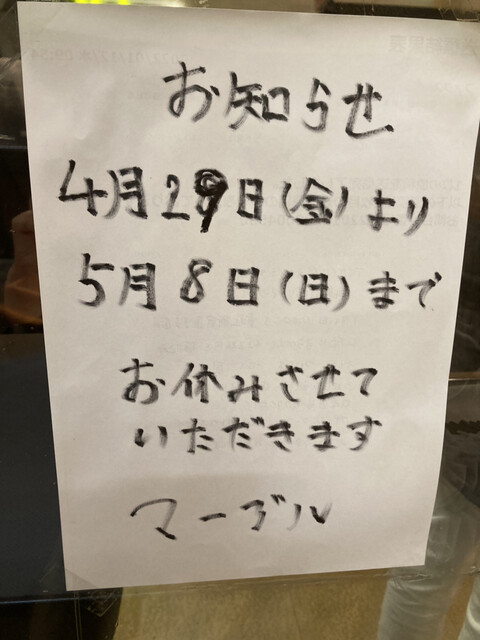 お知らせ
4月29日(金)より
5月8日(日)まで
お休みさせて
いただきます
マーブル